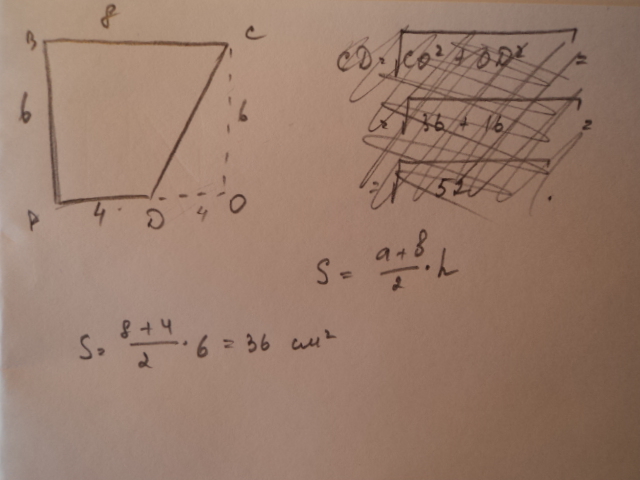 8
B C
6 6
A 4 D 4 O
CD = √CO² + OD² =
= √36 + 16 =
= √52.
S = (a + b)/2 · h
S = (8 + 4)/2 · 6 = 36 см²